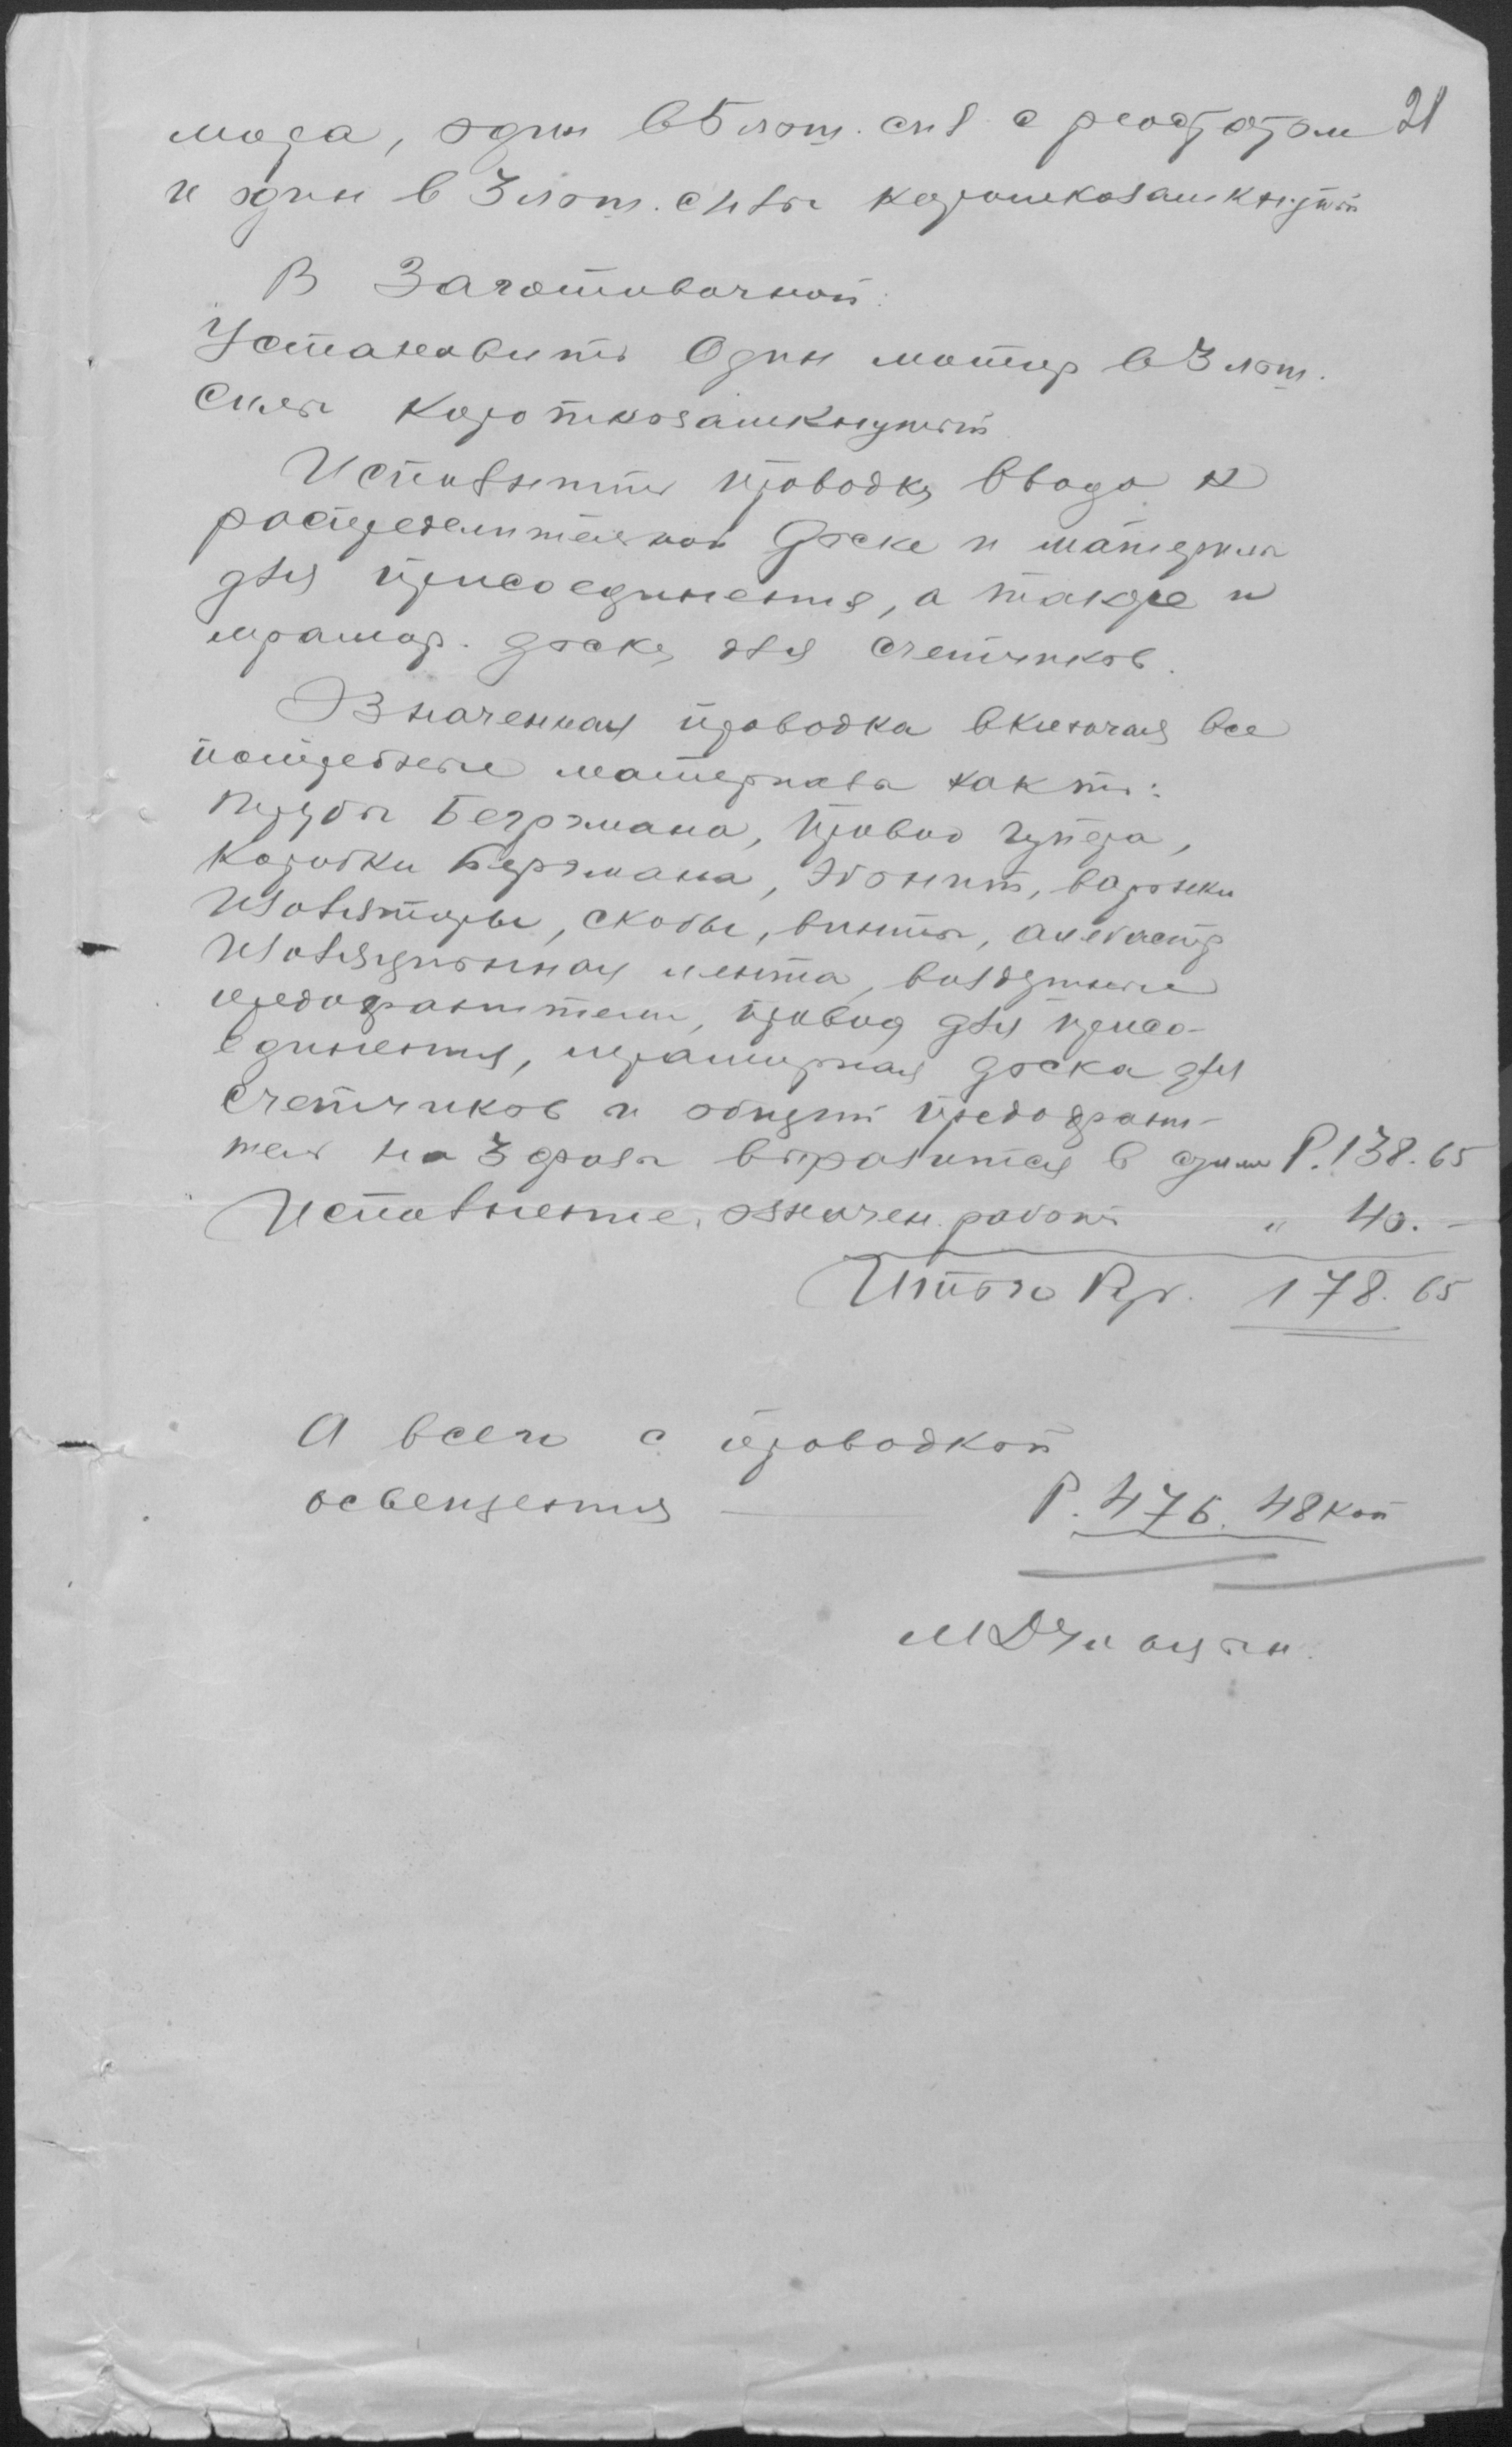 21
мора, один в 5 лош. сил с реостатом
и один в 3 лош. силы короткозамкнутый
В Заготовочной:
Установить Один мотор в 3 лош.
силы короткозамкнутый
Исполнить проводку ввода к
распределительной доске и материал
для присоединения, а также и
мрамор. доску для счетчиков.
Означенная проводка включая все
потребные материалы как то:
трубы Бергмана, провод гупера,
коробки Бергмана, эбонит,
изоляторы, скобы, винты, алебастр
изоляционная лента, воздушные
предохранители, провод для присо-
единения, мраморная доска для
счетчиков и общий предохрани-
тель на 3 фазы выразится в сумме Р. 138.65
Исполнение означен. работ " 40. –
Итого Руб. 178.65
А всего с проводкой
освещения — Р. 476. 48 коп